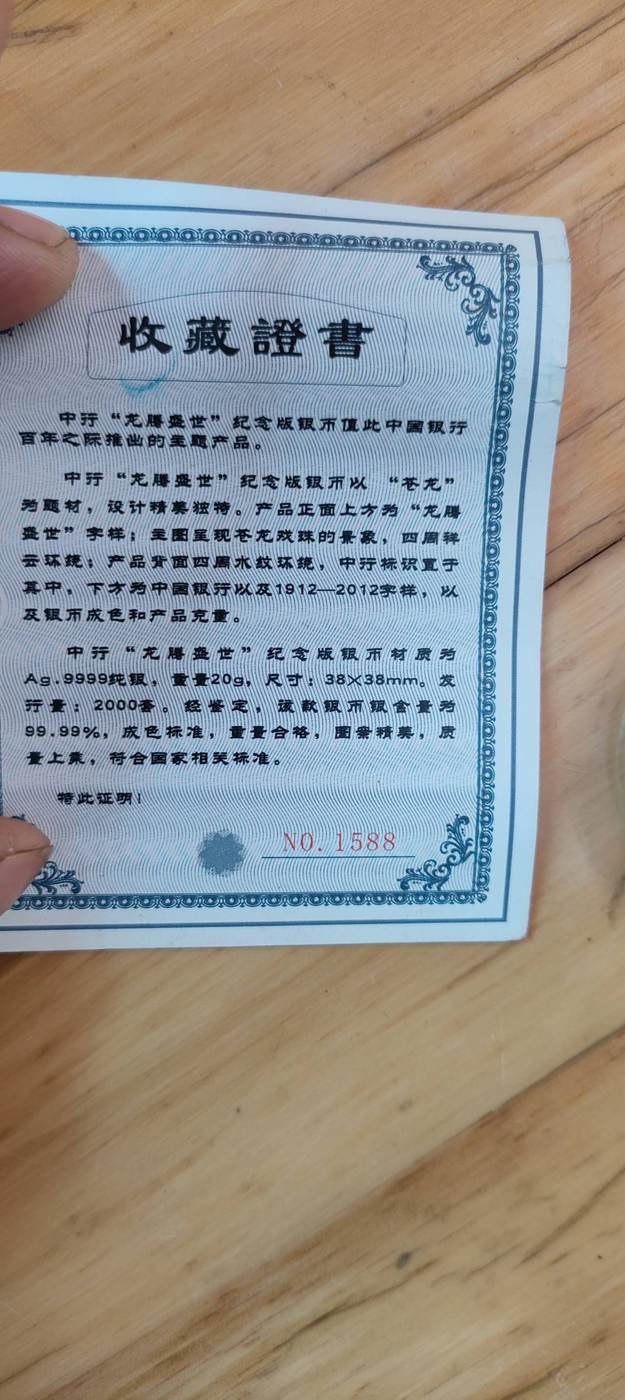 收藏證書
中行“龙腾盛世”纪念版银币值此中国银行
百年之际推出的主题产品。
中行“龙腾盛世”纪念版银币以 “苍龙”
为题材，设计精美独特。产品正面上方为“龙腾
盛世”字样；主图呈现苍龙戏珠的景象，四周祥
云环绕；产品背面四周水纹环绕，中行标识置于
其中，下方为中国银行以及1912—2012字样，以
及银币成色和产品克重。
中行“龙腾盛世”纪念版银币材质为
Ag.9999纯银，重量20g，尺寸：38×38mm。发
行量：2000套。经鉴定，该款银币银含量为
99.99%，成色标准，重量合格，图案精美，质
量上乘，符合国家相关标准。
特此证明！
NO.1588